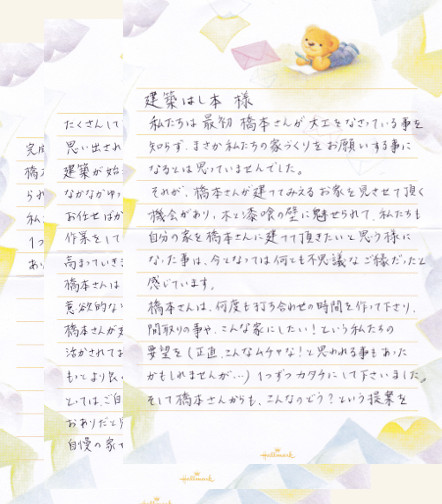 建築はし本 様
私たちは最初橋本さんが大工をなさっている事を
知らず、まさか私たちの家づくりをお願いする事に
なるとは思っていませんでした。
それが、橋本さんが建ててみえるお家を見させて頂く
機会があり、木と漆喰の壁に魅せられて、私たちも
自分の家を橋本さんに建てて頂きたいと思う様に
なった事は、今となっては何とも不思議なご縁だったと
感じています。
橋本さんは、何度も打ち合わせの時間を作って下さり、
間取りの事や、こんな家にしたい!という私たちの
要望を(正直、こんなムチャな!と思われる事もあった
かもしれませんが…)1つずつカタチにして下さいました。
そして橋本さんからも、こんなのどう?という提案を
Hallmark
たくさんして
思い出され
建築が始
なかなかゆっ
お任せばか
作業をして
高まっていき
橋本さんは
意欲的な
橋本さんが
活かされてお
もとより良い
とっては、ご自
おありだと
自慢の家で
Hallmark
完成
橋本
られ
私
1つ
あり
Hallmark